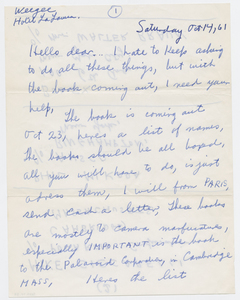 Weegee
Hotel La Louisiane
(1)
Saturday Oct 14, 61
Hello dear.. I hate to keep asking
to do, all these things, but with
the book coming out, I need your
help, The book is coming out
Oct 23, here's a list of names,
the books should be all boxed,
all you will have to do, is just
adress them, I will from PARIS,
send each a letter, these books
are mostly to camera manufactures,
especially IMPORTANT is the book
to the Polaroid Corporation, in Cambridge
MASS, Heres the list